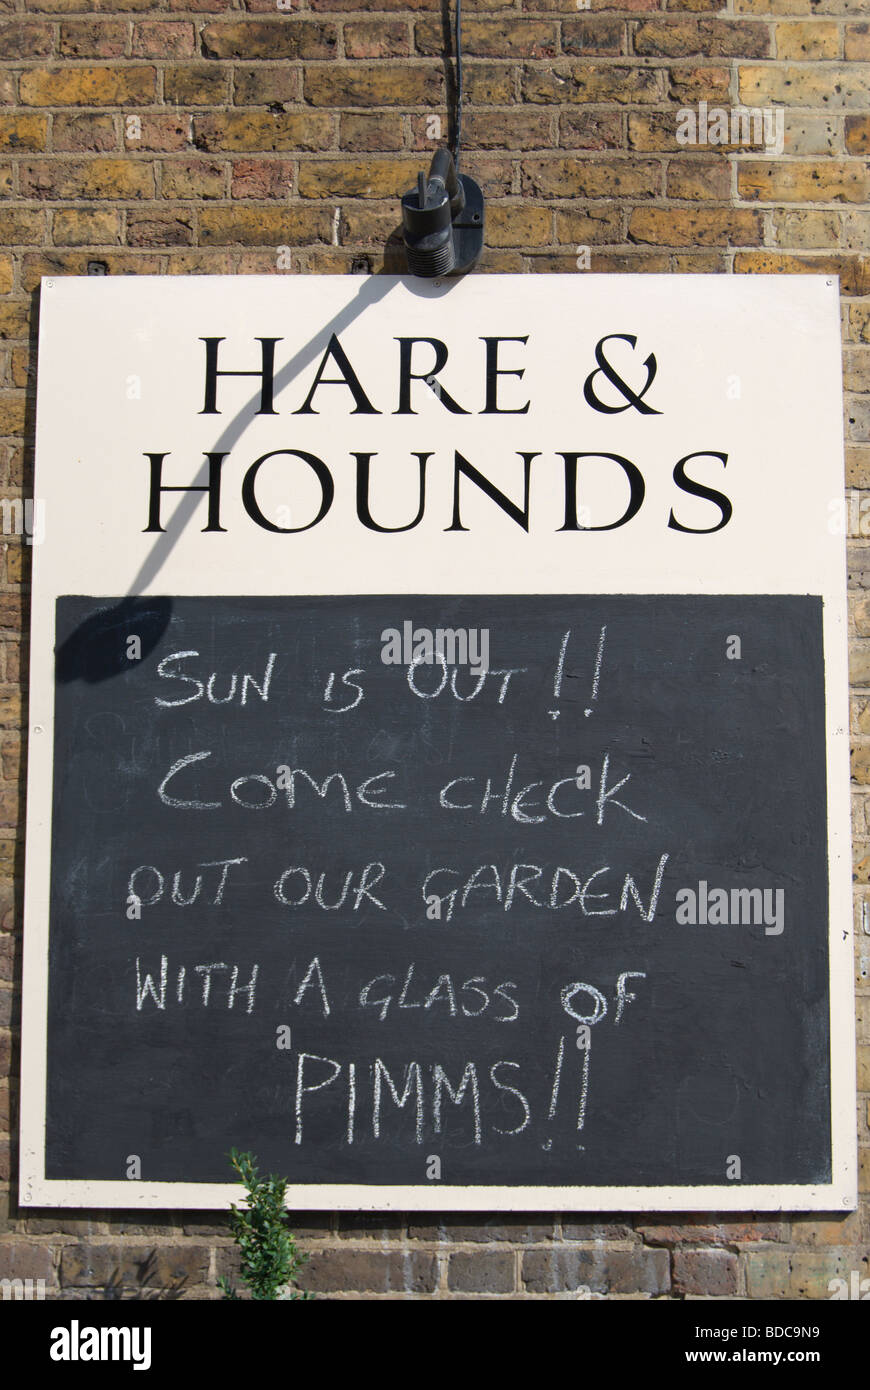 HARE &
HOUNDS
SUN IS OUT!!
COME CHECK
OUT OUR GARDEN
WITH A GLASS OF
PIMMS!!
alamy
alamy
Image ID: BDC9N9
www.alamy.com